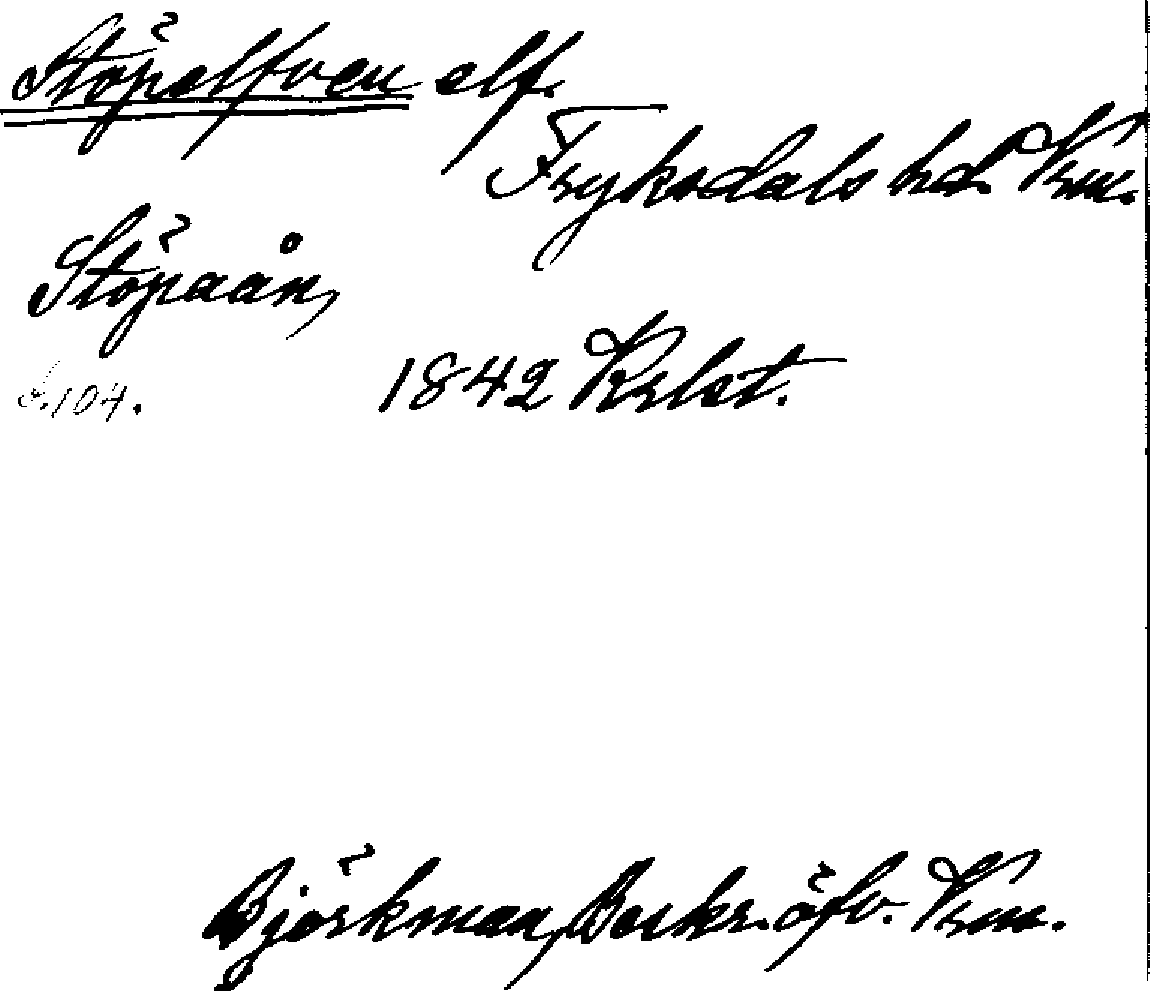 Stöpelfven elf.
Fryksdals hd. Vrm.
Stöpaån,
s. 104. 1842 Krlst.
Björkman, Beskr. öfv. Vrm.